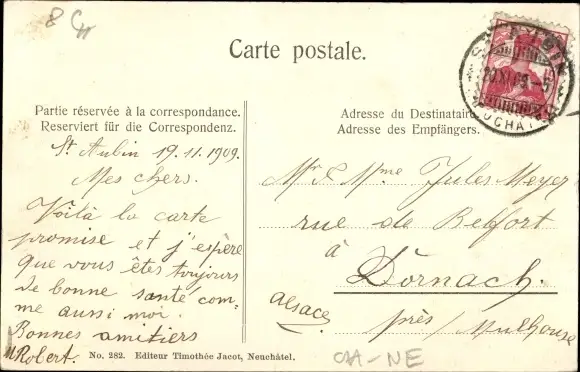 8 
Carte postale.
ST AUBIN
20.XI.09.-5
NEUCHATEL
Partie réservée à la correspondance.
Reserviert für die Correspondenz.
Adresse du Destinataire.
Adresse des Empfängers.
St Aubin 19.11.1909.
Mes chers.
Voilà la carte
promise et j'espère
que vous êtes toujours
de bonne santé com-
me aussi moi.
Bonnes amitiers
Robert.
Mr & Mme Jules Meyer
rue de Belfort
à
Dornach.
Alsace
près / Mulhouse
No. 282. Editeur Timothée Jacot, Neuchâtel.
CH-NE